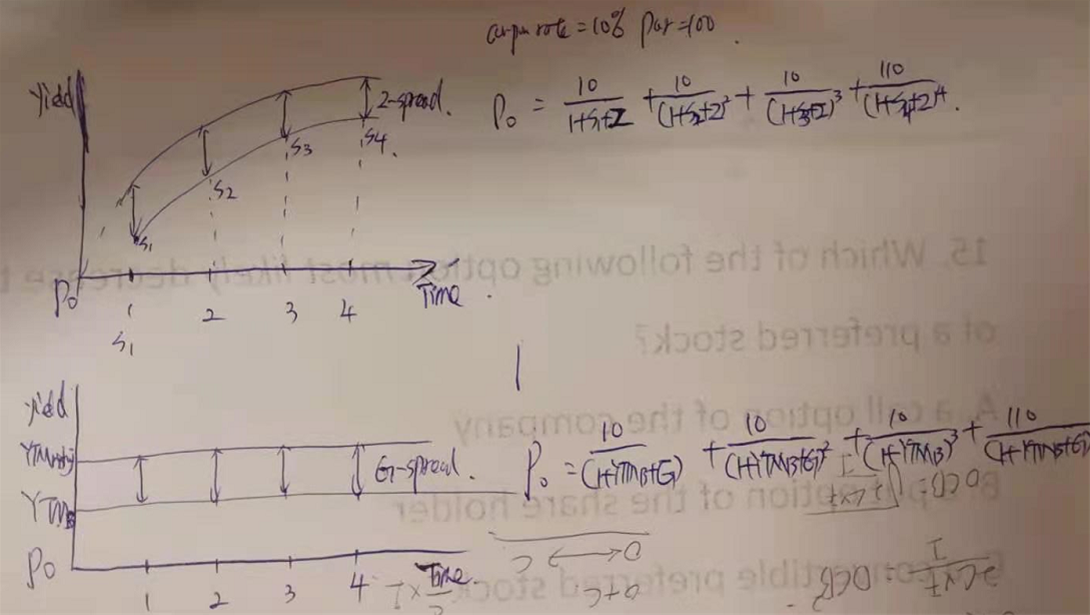 coupon rate = 10% par = 100.
Yield
Z-spread.
P₀ = 10/(1+S₁+Z) + 10/(1+S₂+Z)² + 10/(1+S₃+Z)³ + 110/(1+S₄+Z)⁴.
S₁ S₂ S₃ S₄.
P₀ 1 2 3 4 Time.
S₁
15. Which of the following option most likely decrease t
of a preferred stock?
A. a call option of the company
option of the share holder
convertible preferred stock
yield
YTM
G-spread.
P₀ = 10/(1+YTMB+G) + 10/(1+YTMB+G)² + 10/(1+YTMB)³ + 110/(1+YTMB+G)
YTMB
P₀ 1 2 3 4 Time.